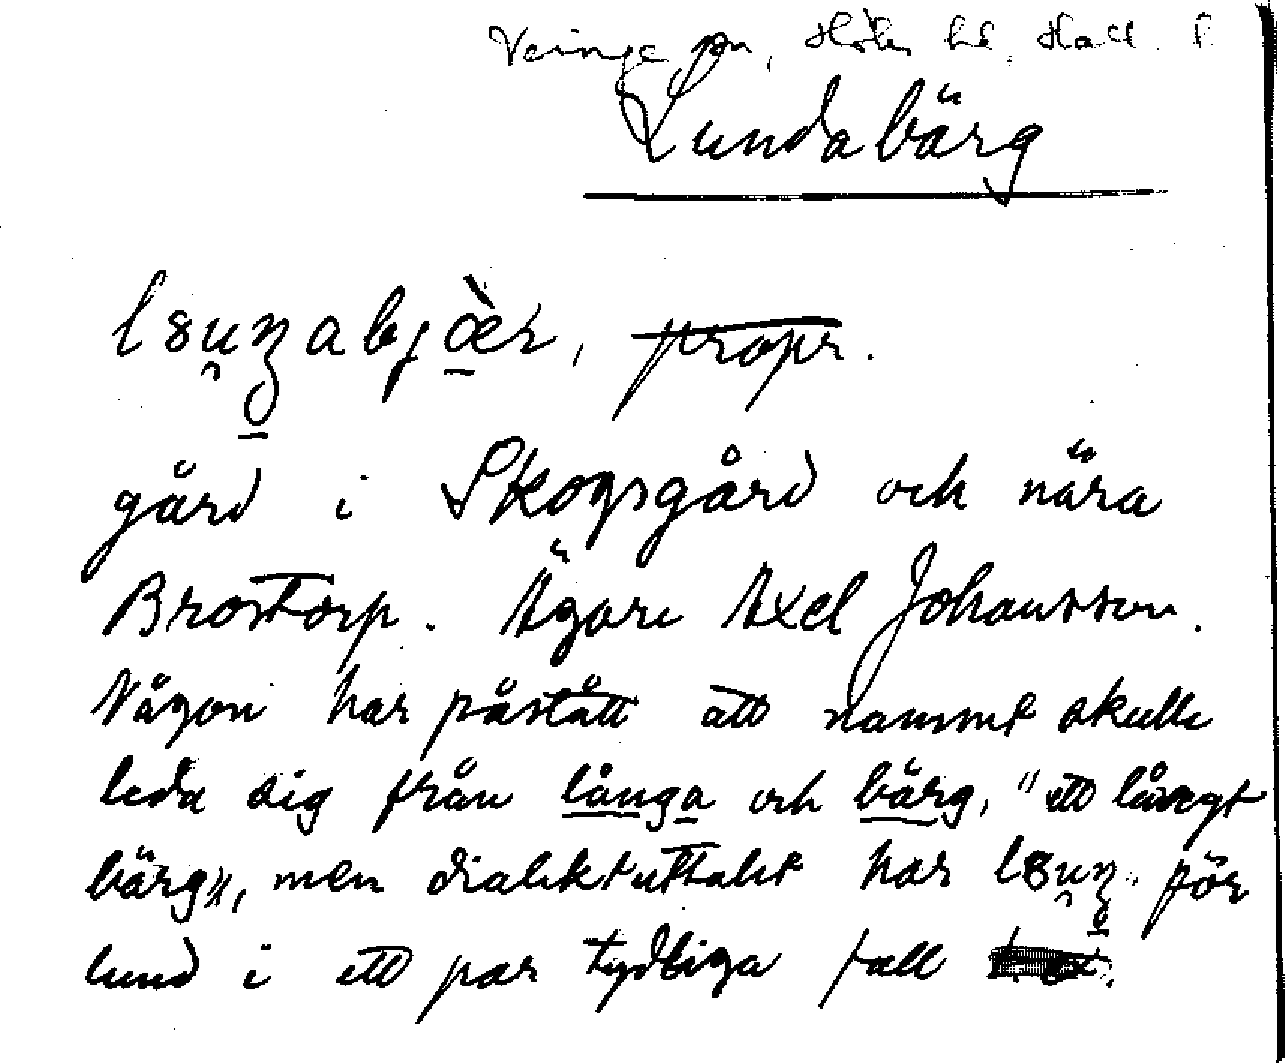 Veinge sn, Höks hd. Hall. l.
Lundabärg
gård i Skogsgård och nära
Brostorp. Ägare Axel Johansson.
Någon har påstått att namnet skulle
leda sig från långa och bärg, "ett långt
bärg", men dialektuttalet har för
lund i ett par tydliga fall